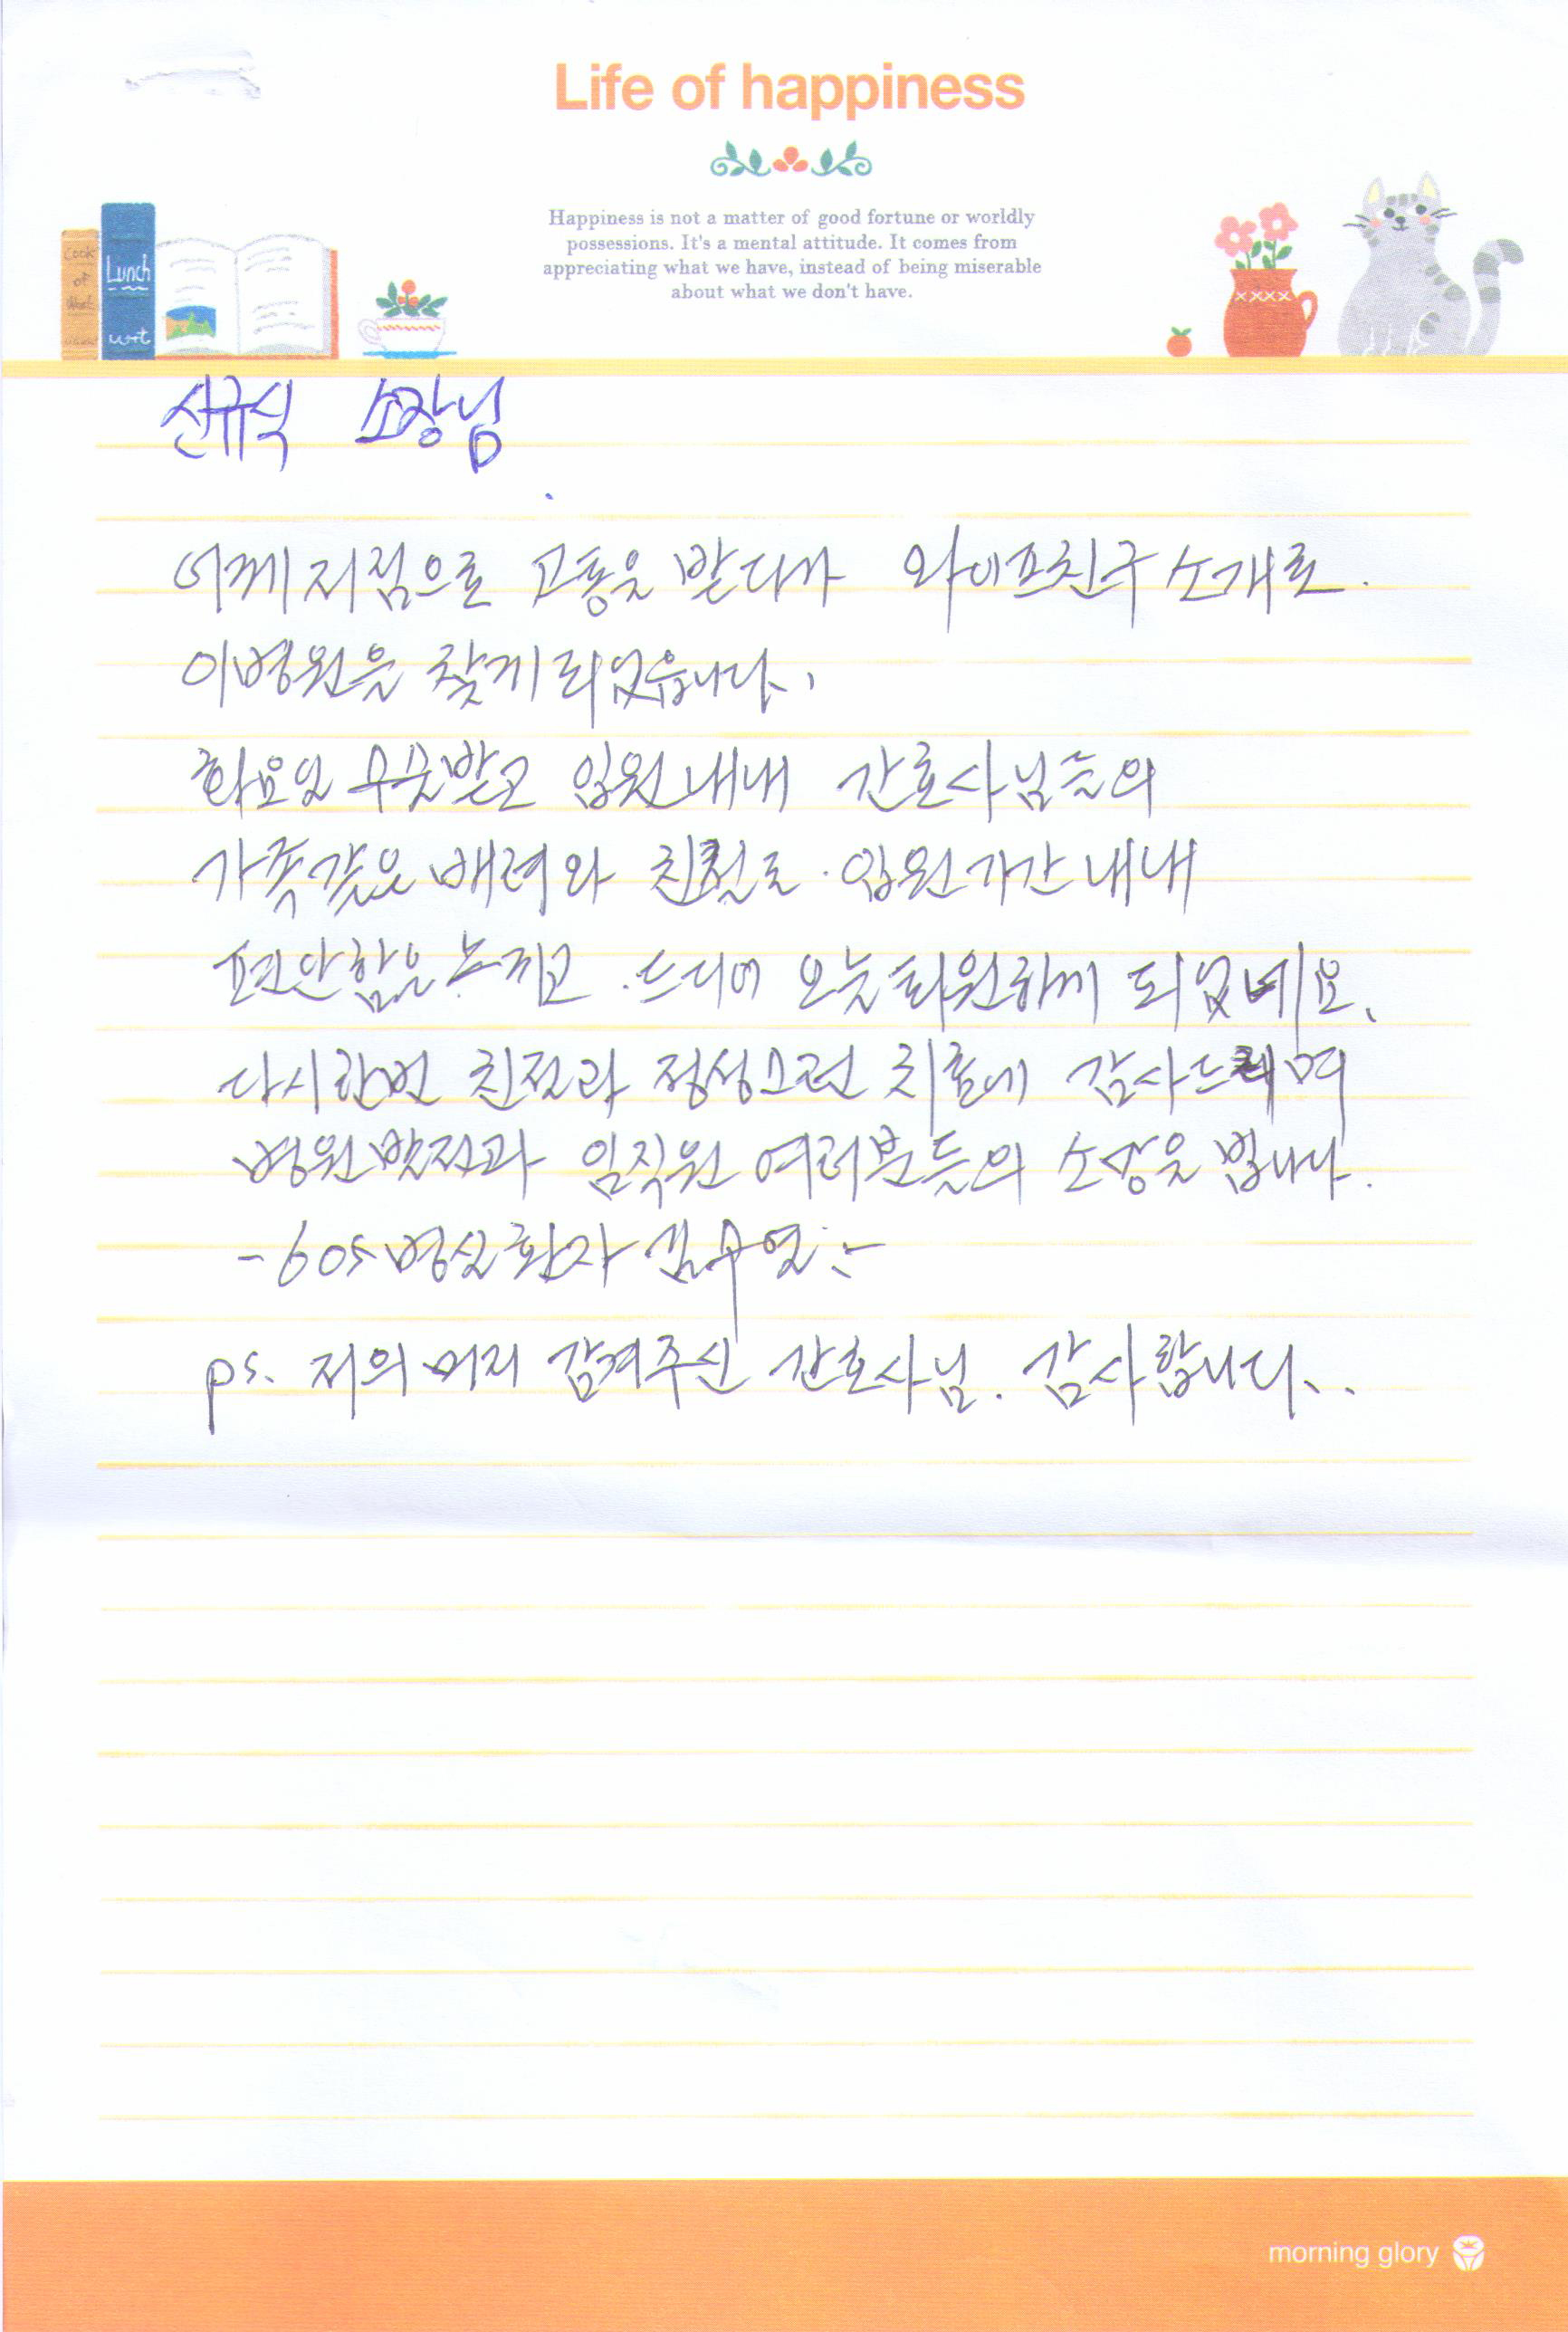 Life of happiness
Happiness is not a matter of good fortune or worldly
possessions. It's a mental attitude. It comes from
appreciating what we have, instead of being miserable
about what we don't have.
Cook
of
What
Lunch
wrt
신규식 소장님
어께 지점으로 고통을 받다가 와이프친구 소개로.
이병원을 찾게 되었읍니다.
화요일 수술받고 입원내내 간호사님들의
가족같은 배려와 친절로. 입원기간 내내
편안함을 느끼고. 드디어 오늘퇴원하게 되었네요.
다시한번 친절과 정성스런 치료에 감사드리며
병원발전과 임직원 여러분들의 소망을 빕니다.
-605병실 환자 김수열:-
ps. 저의 머리 감겨주신 간호사님. 감사합니다..
morning glory